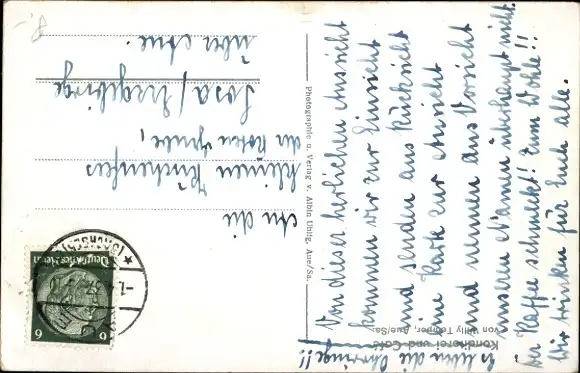 Von dieser herrlichen Aussicht
kommen wir zur Einsicht
und senden aus Rücksicht
eine Karte zur Ansicht
und nennen aus Vorsicht
unseren Namen überhaupt nicht.
Der Kaffe schmeckt! Zum Wohle!!
Wir trinken für Euch alle.
Es leben die !!
Konditorei und Café
von Willy Aue/Sa.
Photographie u. Verlag v. Albin Uhlig, Aue/Sa.
An die
kleinen
der roten Grube,
Sosa/Erzgebirge
über Aue.
Deutsches Reich
6 6
(SACHSEN)